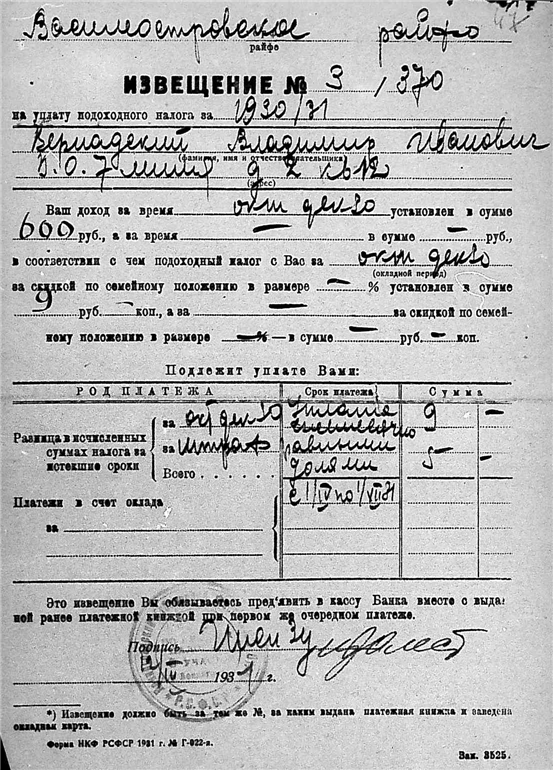 Василеостровское райфо
47
райфе
ИЗВЕЩЕНИЕ № 3, 370
на уплату подоходного налога за 1930/31
Вернадский Владимир Иванович
(фамилия, имя и отчество плательщика)
В.О. 7 линия д 2 кв 12
(адрес)
Ваш доход за время окт дек 30 установлен в сумме
600 руб., а за время — в сумме — руб.,
в соответствии с чем подоходный налог с Вас за окт дек 30
(окладной период)
за скидкой по семейному положению в размере — % установлен в сумме
9 руб. коп., а за — за скидкой по семей-
ному положению в размере —% — в сумме — руб. — коп.
Подлежит уплате Вами:
РОД ПЛАТЕЖА Срок платежа Сумма
Разница в исчисленных суммах налога за истекшие сроки
за окт дек 30 Уплата 9 —
ежемесячно
за штраф равными
Всего долями 5 —
с 1/IV по 1/VII 31
Платежи в счет оклада
за
Это извещение Вы обязываетесь пред'явить в кассу Банка вместе с выдан
ной ранее платежной книжкой при первом же очередном платеже.
Подпись
1931 г.
*) Извещение должно быть за тем же №, за каким выдана платежная книжка и заведена
окладная карта.
Форма НКФ РСФСР 1931 г. № Г-022-я.
Зак. 3525.